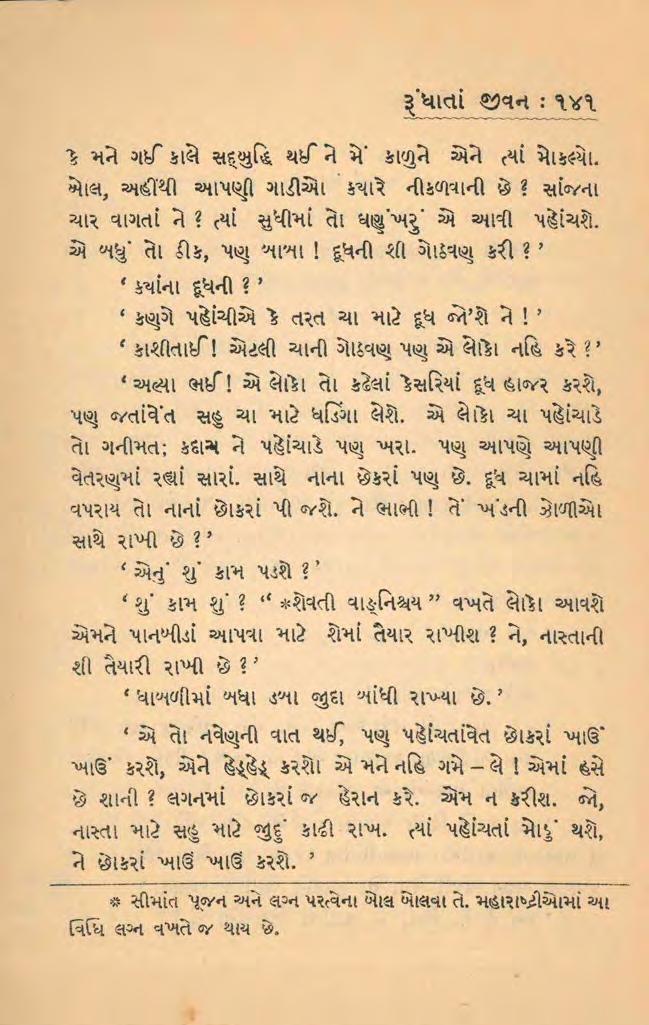 રૂંધાતાં જીવન : ૧૪૧
કે મને ગઈ કાલે સદ્‌બુદ્ધિ થઈ ને મેં કાળુને એને ત્યાં મોકલ્યો.
બોલ, અહીંથી આપણી ગાડીઓ ક્યારે નીકળવાની છે ? સાંજના
ચાર વાગતાં ને ? ત્યાં સુધીમાં તો ઘણુંખરું એ આવી પહોંચશે.
એ બધું તો ઠીક, પણ બાબા ! દૂધની શી ગોઠવણ કરી ?’
‘ ક્યાંના દૂધની ?’
‘ કણગે પહોંચીએ કે તરત ચા માટે દૂધ જો’શે ને ! ’
‘ કાશીતાઈ ! એટલી ચાની ગોઠવણ પણ એ લોકો નહિ કરે ?’
‘ અલ્યા ભઈ ! એ લોકો તો કઢેલાં કેસરિયાં દૂધ હાજર કરશે,
પણ જતાંવેંત સહુ ચા માટે ધડિંગા લેશે. એ લોકો ચા પહોંચાડે
તો ગનીમત; કદાચ ને પહોંચાડે પણ ખરા. પણ આપણે આપણી
વેતરણમાં રહ્યાં સારાં. સાથે નાના છોકરાં પણ છે. દૂધ ચામાં નહિ
વપરાય તો નાનાં છોકરાં પી જશે. ને ભાભી ! તેં ખંડની ઝોળીઓ
સાથે રાખી છે ?’
‘ એનું શું કામ પડશે ?’
‘ શું કામ શું ? “ *શેવતી વાઙ્‌નિશ્ચય ” વખતે લોકો આવશે
એમને પાનબીડાં આપવા માટે શેમાં તૈયાર રાખીશ ? ને, નાસ્તાની
શી તૈયારી રાખી છે ?’
‘ ધાબળીમાં બધા ડબા જુદા બાંધી રાખ્યા છે.’
‘ એ તો નવેણની વાત થઈ, પણ પહોંચતાંવેત છોકરાં ખાઉં
ખાઉં કરશે, એને હેડ્‌હેડ્ કરશો એ મને નહિ ગમે – લે ! એમાં હસે
છે શાની ? લગનમાં છોકરાં જ હેરાન કરે. એમ ન કરીશ. જો,
નાસ્તા માટે સહુ માટે જુદું કાઢી રાખ. ત્યાં પહોંચતાં મોડું થશે,
ને છોકરાં ખાઉં ખાઉં કરશે. ’
* સીમાંત પૂજન અને લગ્ન પરત્વેના બોલ બોલવા તે. મહારાષ્ટ્રીઓમાં આ
વિધિ લગ્ન વખતે જ થાય છે.